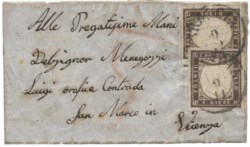 Alle Pregatissime Mani
Del Signor Menegozzi
Luigi orefice Contrada
San Marco in
Vicenza